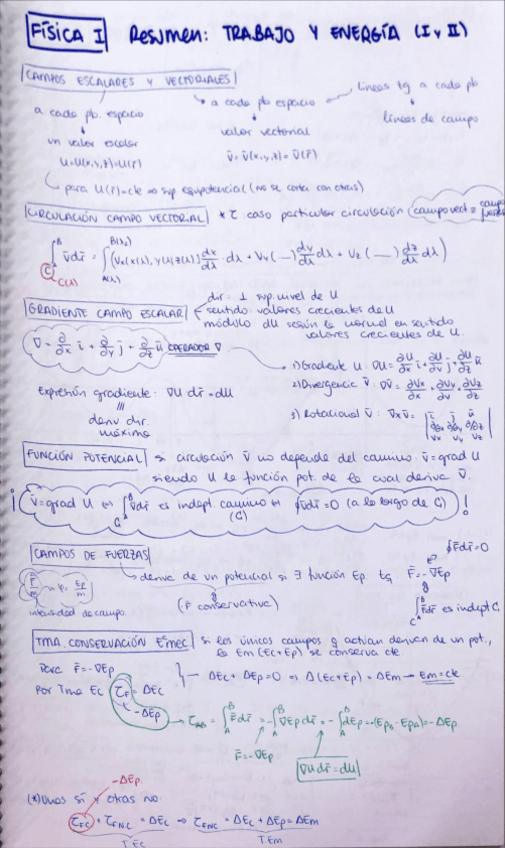 FÍSICA I Resumen: TRABAJO Y ENERGÍA (I y II)
CAMPOS ESCALARES Y VECTORIALES
a cada pto. espacio
un valor escalar
U=U(x,y,z)=U(r̄)
a cada pto espacio
valor vectorial
v̄=v̄(x,y,z)=v̄(r̄)
líneas tg a cada pto
líneas de campo
para U(r̄)=cte ⇒ sup. equipotencial (no se corta con otras)
CIRCULACIÓN CAMPO VECTORIAL * τ caso particular circulación (campo vect = campo fuerzas
∫_A^B v̄dr̄ = ∫_{A(λ₁)}^{B(λ₂)} (Vx(x(λ),y(λ),z(λ)) dx/dλ · dλ + Vy(—) dy/dλ dλ + Vz(—) dz/dλ dλ)
C C(λ)
GRADIENTE CAMPO ESCALAR
dir = ⊥ sup. nivel de U
sentido valores crecientes de U
módulo dU según la normal en sentido
valores crecientes de U.
∇ = ∂/∂x ī + ∂/∂y j̄ + ∂/∂z k̄ OPERADOR ∇
1) Gradiente U: ∇U = ∂U/∂x ī + ∂U/∂y j̄ + ∂U/∂z k̄
2) Divergencia v̄: ∇v̄ = ∂Vx/∂x + ∂Vy/∂y + ∂Vz/∂z
3) Rotacional v̄: ∇×v̄ = | ī j̄ k̄ ; ∂/∂x ∂/∂y ∂/∂z ; Vx Vy Vz |
Expresión gradiente: ∇U dr̄ = dU
deriv dir.
máxima
FUNCIÓN POTENCIAL si circulación v̄ no depende del camino: v̄ = grad U
siendo U la función pot. de la cual deriva v̄.
¡ v̄ = grad U ⇔ ∫_A^B v̄dr̄ es indept camino ⇔ ∮v̄dr̄ = 0 (a lo largo de C) !
C (C)
CAMPOS DE FUERZAS
∮F̄dr̄=0
deriva de un potencial si ∃ función Ep. tq F̄=-∇Ep
F̄/m Ep/m
intensidad de campo.
(F̄ conservativa)
∫_A^B F̄dr̄ es indept C.
C
TMA. CONSERVACIÓN Eª MEC si los únicos campos q actúan derivan de un pot.,
la Em (Ec+Ep) se conserva cte
Para F̄=-∇Ep
Por Tma Ec τF = ΔEc
-ΔEp
ΔEc + ΔEp = 0 ⇒ Δ(Ec+Ep) = ΔEm — Em=cte
τAB = ∫_A^B F̄dr̄ = -∫_A^B ∇Ep dr̄ = -∫_A^B dEp = -(EpB - EpA) = -ΔEp
F̄=-∇Ep
∇U dr̄ = dU
-ΔEp.
(*) Unas sí y otras no:
τFC + τFNC = ΔEc → τFNC = ΔEc + ΔEp = ΔEm
TEC TEm